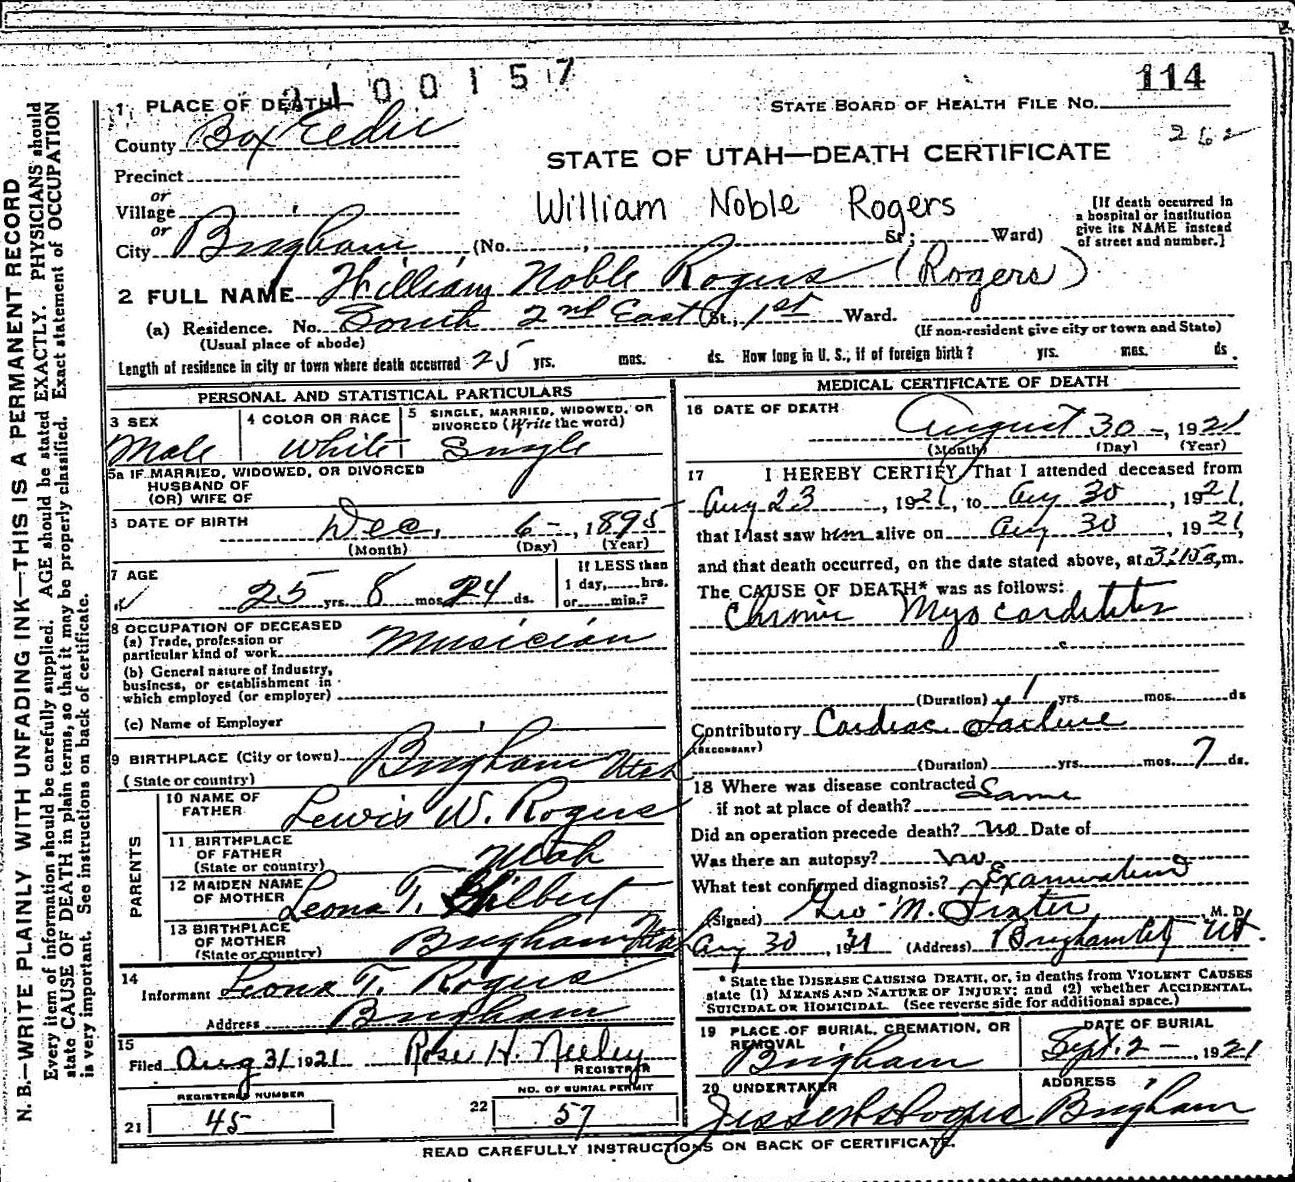 2100157
114
1 PLACE OF DEATH
STATE BOARD OF HEALTH FILE NO.
County Box Elder
262
STATE OF UTAH—DEATH CERTIFICATE
Precinct
or
Village
William Noble Rogers
[If death occurred in
a hospital or institution
give its NAME instead
of street and number.]
or
City Brigham (No. St; Ward)
2 FULL NAME William Noble Rogers (Rogers)
(a) Residence. No. South 2nd East St., 1st Ward.
(Usual place of abode)
(If non-resident give city or town and State)
Length of residence in city or town where death occurred 25 yrs. mos. ds. How long in U. S., if of foreign birth? yrs. mos. ds.
PERSONAL AND STATISTICAL PARTICULARS
3 SEX Male
4 COLOR OR RACE White
5 SINGLE, MARRIED, WIDOWED, OR
DIVORCED (Write the word)
Single
5a IF MARRIED, WIDOWED, OR DIVORCED
HUSBAND OF
(OR) WIFE OF
6 DATE OF BIRTH Dec. 6 -, 1895
(Month) (Day) (Year)
7 AGE
25 yrs. 8 mos. 24 ds.
If LESS than
1 day, hrs.
or min.?
8 OCCUPATION OF DECEASED
(a) Trade, profession or
particular kind of work Musician
(b) General nature of Industry,
business, or establishment in
which employed (or employer)
(c) Name of Employer
9 BIRTHPLACE (City or town) Brigham Utah
(State or country)
PARENTS
10 NAME OF
FATHER Lewis W. Rogers
11 BIRTHPLACE
OF FATHER Utah
(State or country)
12 MAIDEN NAME
OF MOTHER Leona T. Hilbert
13 BIRTHPLACE
OF MOTHER Brigham Utah
(State or country)
14
Informant Leona T. Rogers
Address Brigham
15
Filed Aug 31 1921 Rose H. Neeley
REGISTRAR
REGISTERED NUMBER
21 45
NO. OF BURIAL PERMIT
22 57
MEDICAL CERTIFICATE OF DEATH
16 DATE OF DEATH
August 30 -, 1921
(Month) (Day) (Year)
17 I HEREBY CERTIFY, That I attended deceased from
Aug 23, 1921, to Aug 30, 1921,
that I last saw him alive on Aug 30, 1921,
and that death occurred, on the date stated above, at 3:15 a. m.
The CAUSE OF DEATH* was as follows:
Chronic Myocarditis
(Duration) 1 yrs. mos. ds
Contributory Cardiac Failure
(SECONDARY)
(Duration) yrs. mos. 7 ds.
18 Where was disease contracted Same
if not at place of death?
Did an operation precede death? no Date of
Was there an autopsy? no
What test confirmed diagnosis? Examination
(Signed) Geo M. Fister, M. D.
Aug 30, 1921 (Address) Brigham City Ut.
* State the DISEASE CAUSING DEATH, or, in deaths from VIOLENT CAUSES
state (1) MEANS AND NATURE OF INJURY; and (2) whether ACCIDENTAL,
SUICIDAL OR HOMICIDAL. (See reverse side for additional space.)
19 PLACE OF BURIAL, CREMATION, OR
REMOVAL
Brigham
DATE OF BURIAL
Sept. 2 -, 1921
20 UNDERTAKER
ADDRESS
Brigham
READ CAREFULLY INSTRUCTIONS ON BACK OF CERTIFICATE.
N. B.—WRITE PLAINLY WITH UNFADING INK—THIS IS A PERMANENT RECORD
Every item of information should be carefully supplied. AGE should be stated EXACTLY. PHYSICIANS should
state CAUSE OF DEATH in plain terms, so that it may be properly classified. Exact statement of OCCUPATION
is very important. See instructions on back of certificate.